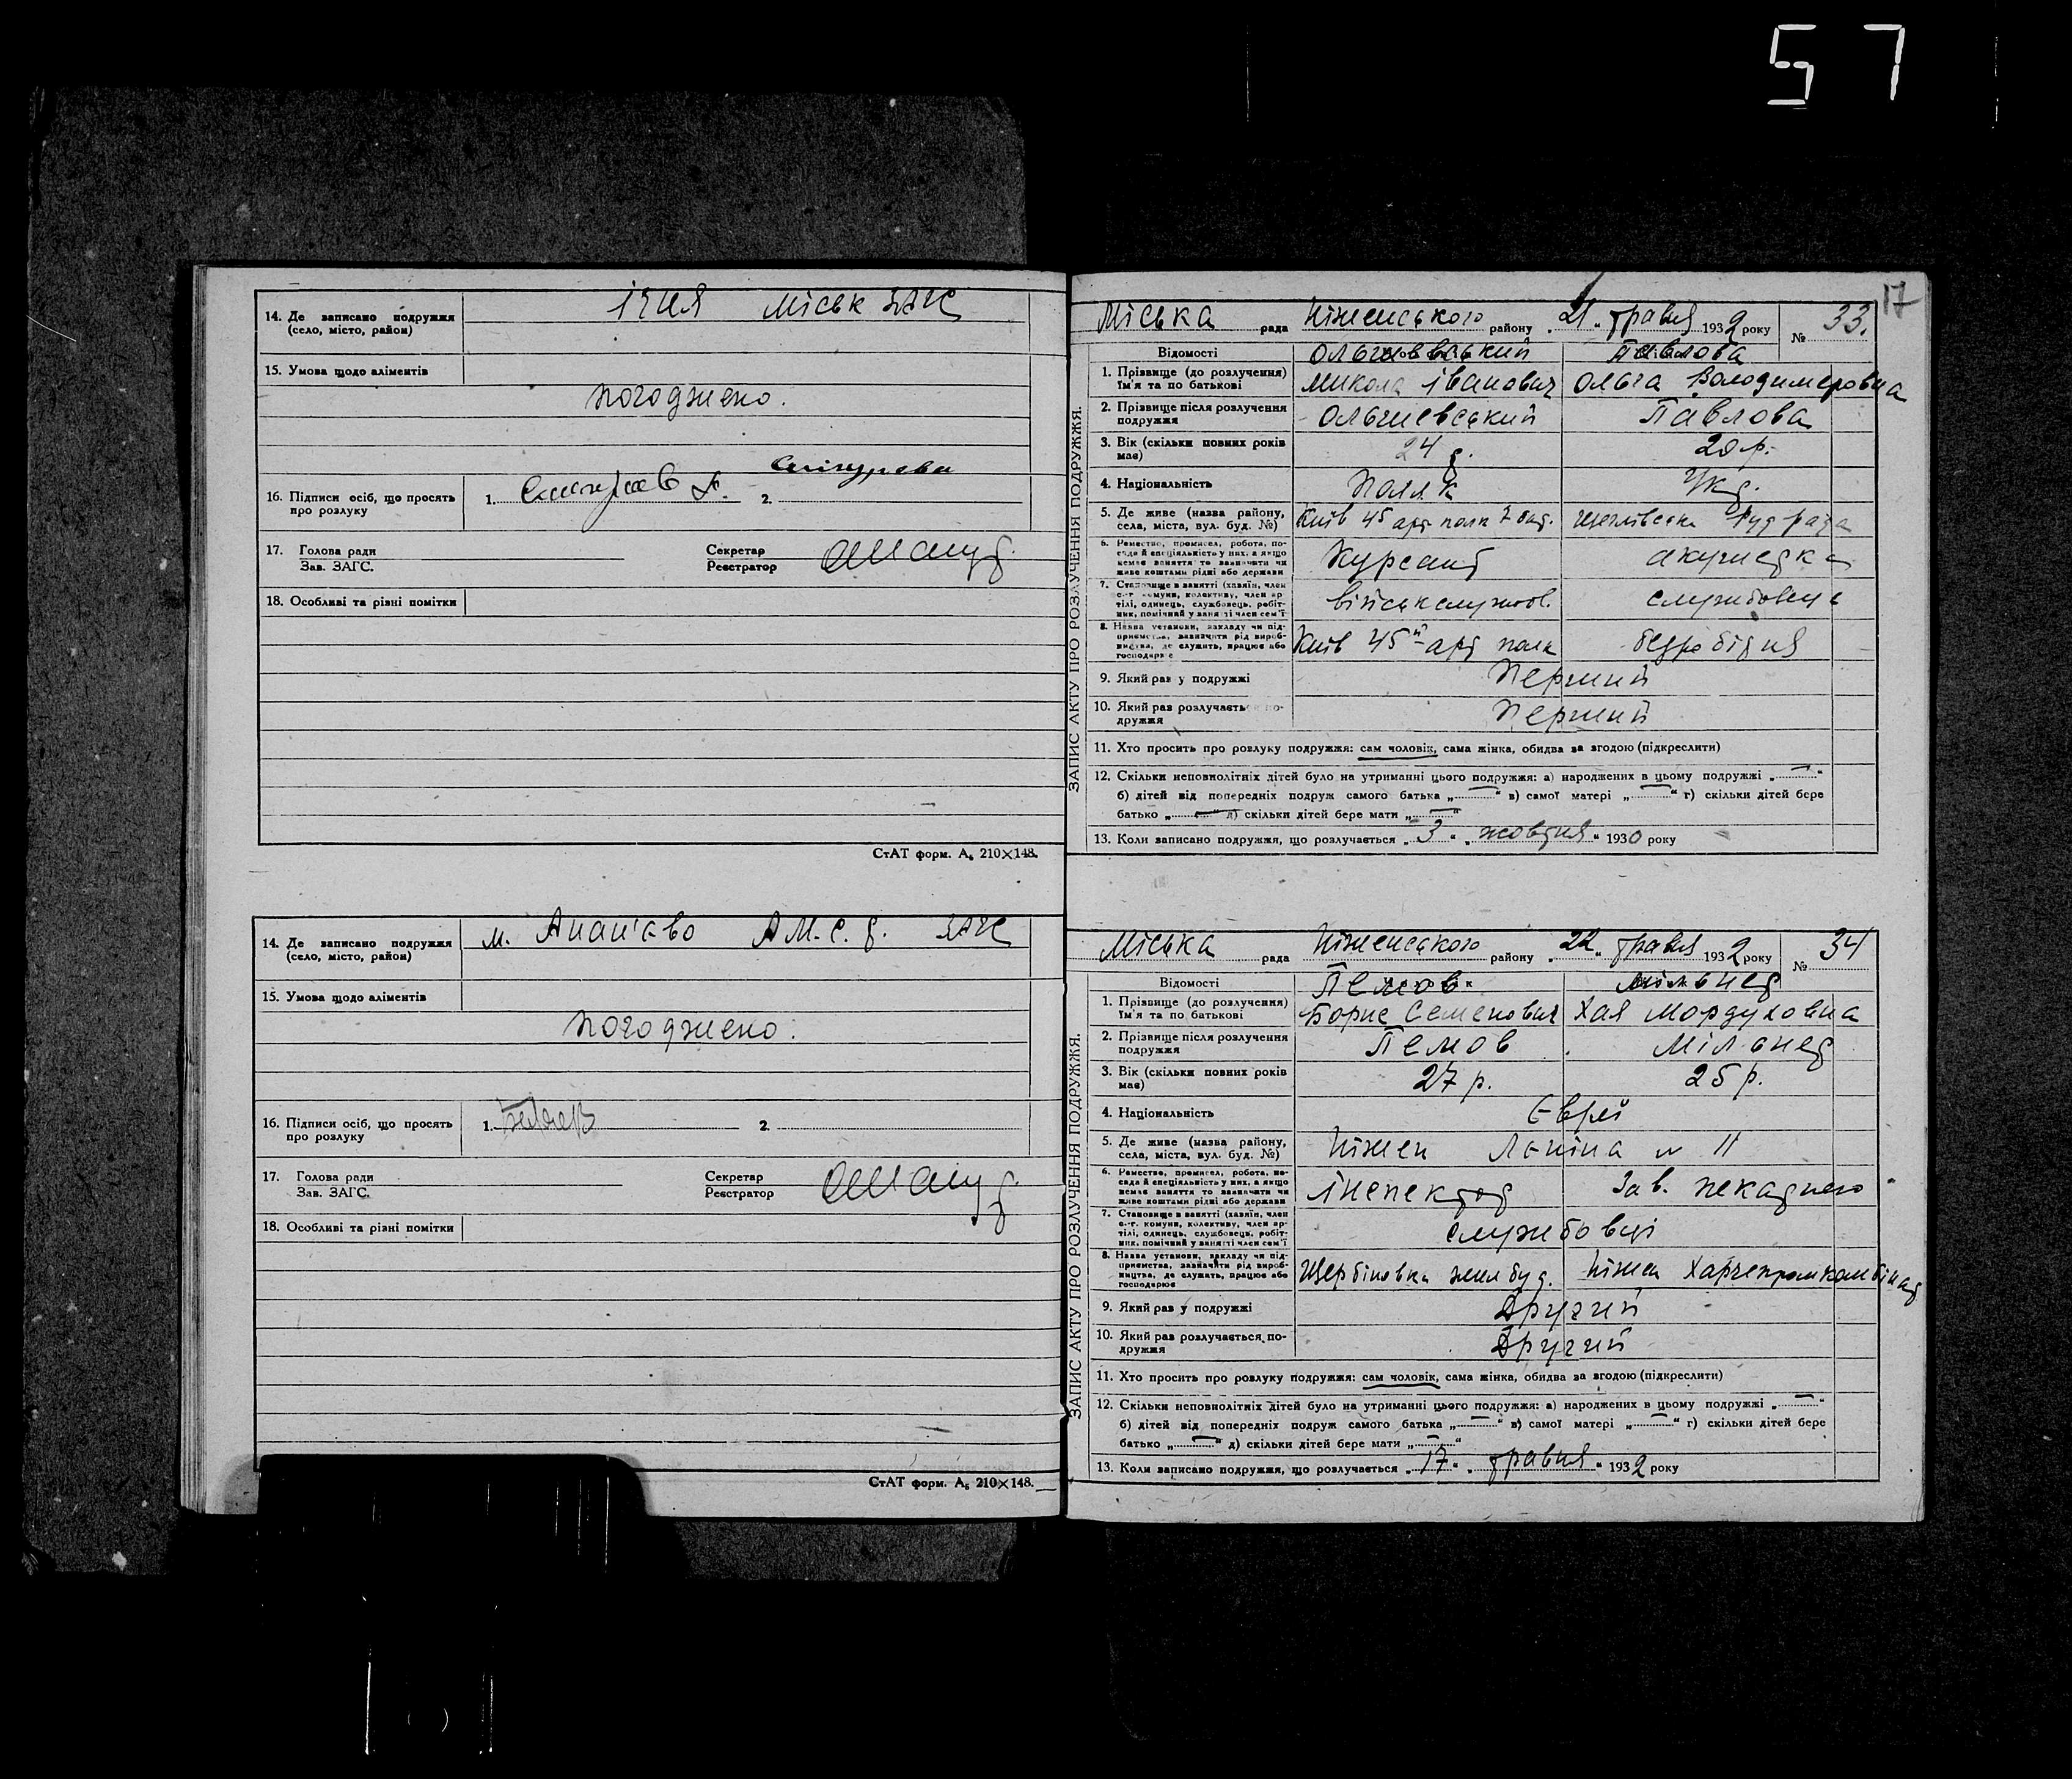 57
14. Де записано подружжя (село, місто, район)
Ічня Міськ ЗАГС
15. Умова щодо аліментів
Погоджено.
16. Підписи осіб, що просять про розлуку
1.
2.
17. Голова ради
Зав. ЗАГС.
Секретар
Реєстратор
18. Особливі та різні помітки
СтАТ форм. А₅ 210×148.
14. Де записано подружжя (село, місто, район)
м. Ананʼєво А.М.С.Т. ЗАГС
15. Умова щодо аліментів
Погоджено.
16. Підписи осіб, що просять про розлуку
1.
2.
17. Голова ради
Зав. ЗАГС.
Секретар
Реєстратор
18. Особливі та різні помітки
СтАТ форм. А₅ 210×148.
17
ЗАПИС АКТУ ПРО РОЗЛУЧЕННЯ ПОДРУЖЖЯ.
Міська рада Ніженського району „21„ травня 1932 року № 33.
Відомості
Ольшевський Павлова
1. Прізвище (до розлучення) Ім'я та по батькові
Микола Іванович Ольга Володимеровна
2. Прізвище після розлучення подружжя
Ольшевський Павлова
3. Вік (скільки повних років має)
24 р. 20 р.
4. Національність
Поляк Укр.
5. Де живе (назва району, села, міста, вул. буд. №)
Київ 45 арт полк
6. Ремество, промисел, робота, посада й спеціяльність у них, а якщо немає заняття то зазначати чи живе коштами рідні або держави
Курсант акушерка
7. Становище в занятті (хазяїн, член с-г. комуни, колективу, член артілі, одинець, службовець, робітник, помічний у занятті член сем'ї
військслужбов. службовець
8. Назва установи, закладу чи підприємства, зазначити рід виробництва, де служить, працює або господарює
Київ 45й арт полк безробітня
9. Який раз у подружжі
Перший
10. Який раз розлучається подружжя
Перший
11. Хто просить про розлуку подружжя: сам чоловік, сама жінка, обидва за згодою (підкреслити)
12. Скільки неповнолітніх дітей було на утриманні цього подружжя: а) народжених в цьому подружжі „—“
б) дітей від попередніх подруж самого батька „—“ в) самої матері „—“ г) скільки дітей бере
батько „—“ д) скільки дітей бере мати „—“
13. Коли записано подружжя, що розлучається „3“ „жовтня“ 1930 року
ЗАПИС АКТУ ПРО РОЗЛУЧЕННЯ ПОДРУЖЖЯ.
Міська рада Ніженського району „22„ травня 1932 року № 34
Відомості
Пемов Мільнер
1. Прізвище (до розлучення) Ім'я та по батькові
Борис Семенович Хая Мордуховна
2. Прізвище після розлучення подружжя
Пемов Мільнер
3. Вік (скільки повних років має)
27 р. 25 р.
4. Національність
Євреї
5. Де живе (назва району, села, міста, вул. буд. №)
Ніжен Леніна № 11
6. Ремество, промисел, робота, посада й спеціяльність у них, а якщо немає заняття то зазначати чи живе коштами рідні або держави
Інспектор Зав. пекарнею
7. Становище в занятті (хазяїн, член с-г. комуни, колективу, член артілі, одинець, службовець, робітник, помічний у занятті член сем'ї
службовці
8. Назва установи, закладу чи підприємства, зазначити рід виробництва, де служить, працює або господарює
Щербіновка жилбуд. Ніжен Харчепромкомбінат
9. Який раз у подружжі
Другий
10. Який раз розлучається подружжя
Другий
11. Хто просить про розлуку подружжя: сам чоловік, сама жінка, обидва за згодою (підкреслити)
12. Скільки неповнолітніх дітей було на утриманні цього подружжя: а) народжених в цьому подружжі „—“
б) дітей від попередніх подруж самого батька „—“ в) самої матері „—“ г) скільки дітей бере
батько „—“ д) скільки дітей бере мати „—“
13. Коли записано подружжя, що розлучається „17“ „травня“ 1932 року